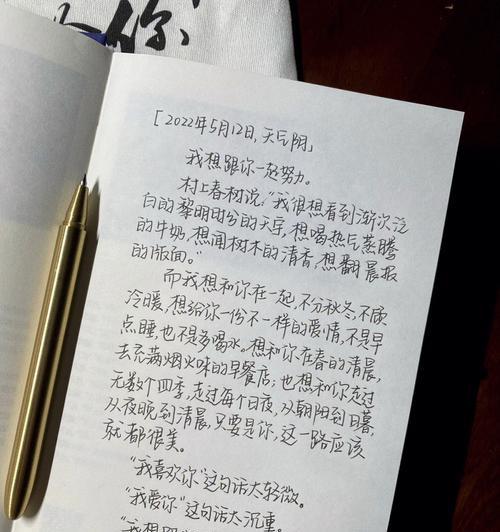 你
「2022年5月12日,天气阴」
我想跟你一起努力。
村上春树说:“我很想看到渐次泛
白的黎明时分的天宇,想喝热气蒸腾
的牛奶,想闻树木的清香,想翻晨报
的版面。”
而我想和你在一起,不分秋冬,不顾
冷暖,想给你一份不一样的爱情,不是早
点睡,也不是多喝水。想和你在春的清晨,
去充满烟火味的早餐店;也想和你走过
无数个四季,走过每个日夜,从朝阳到日暮,
从夜晚到清晨,只要是你,这一路应该
就都很美。
“我喜欢你”这句话太轻微。
“我爱你”这句话太沉重。
“我想跟